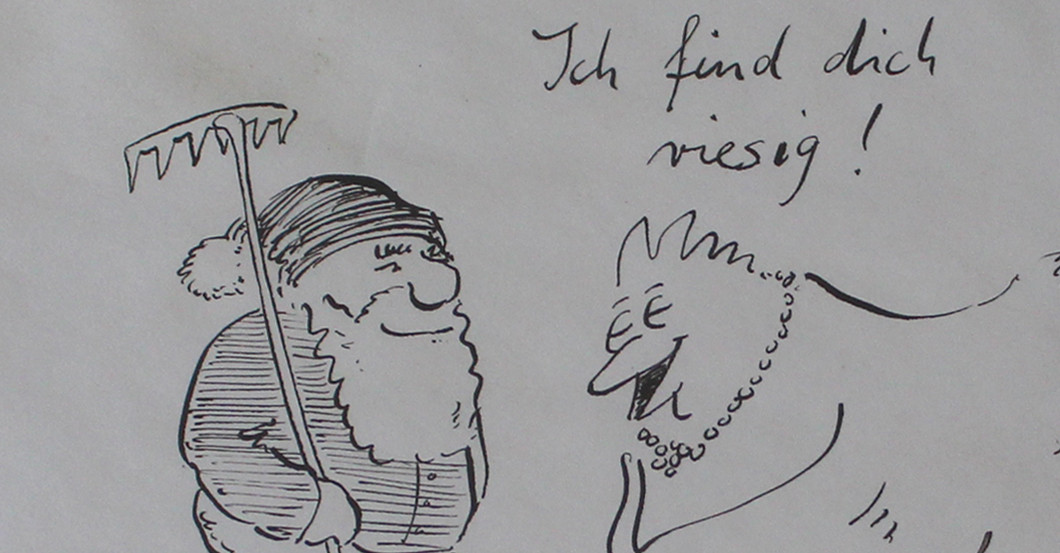 Ich find dich
riesig!